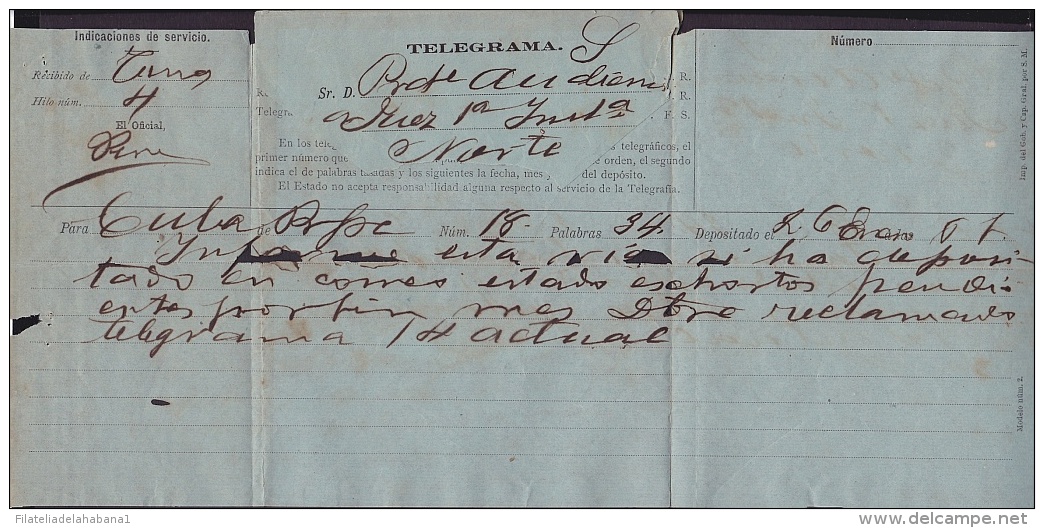 Indicaciones de servicio.
TELEGRAMA. S
Número
Recibido de
Hilo núm. 4
El Oficial,
Sr. D. Prdte Audien
R.
Telegra
a Juez 1ª Instª
R.
F. S.
Norte
En los teleg telegráficos, el
primer número que e orden, el segundo
indica el de palabras tasadas y los siguientes la fecha, mes del depósito.
El Estado no acepta responsabilidad alguna respecto al servicio de la Telegrafía.
Para Cuba de Núm. 18. Palabras 34. Depositado el 26 Enero
Informe esta via si ha deposi-
tado en correo estado exhortos pendi
entes por fin mes Dbre reclamado
telegrama 14 actual
Imp. del Gob. y Cap. Gral. por S. M.
Modelo núm. 2.
Filateliadelahabana1
delcampe.net